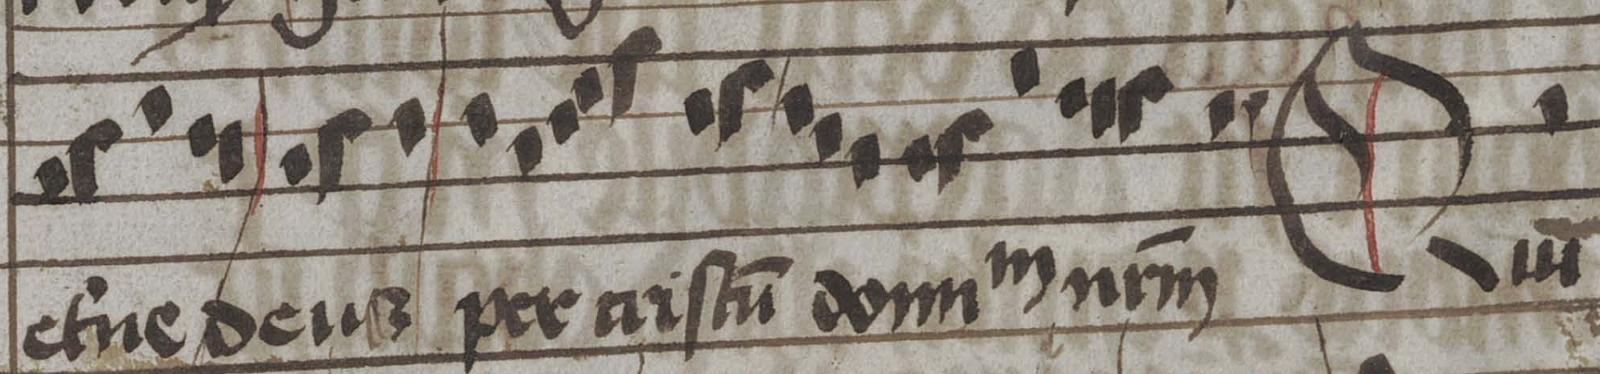 et'ne deus per cristū domīm nrm̄ Qui